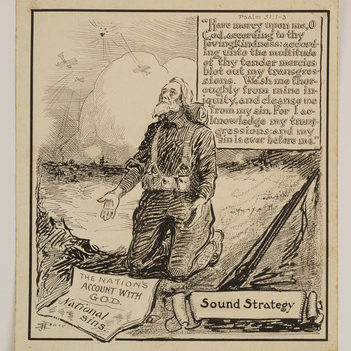 Psalm 51:1-3
"Have mercy upon me, O
God, according to thy
lovingkindness: accord-
ing unto the multitude
of thy tender mercies
blot out my transgres-
sions. Wash me thor-
oughly from mine in-
iquity, and cleanse me
from my sin. For I ac-
knowledge my trans-
gressions: and my
sin is ever before me."
THE NATION'S
ACCOUNT WITH
GOD.
National
Sins.
Sound Strategy